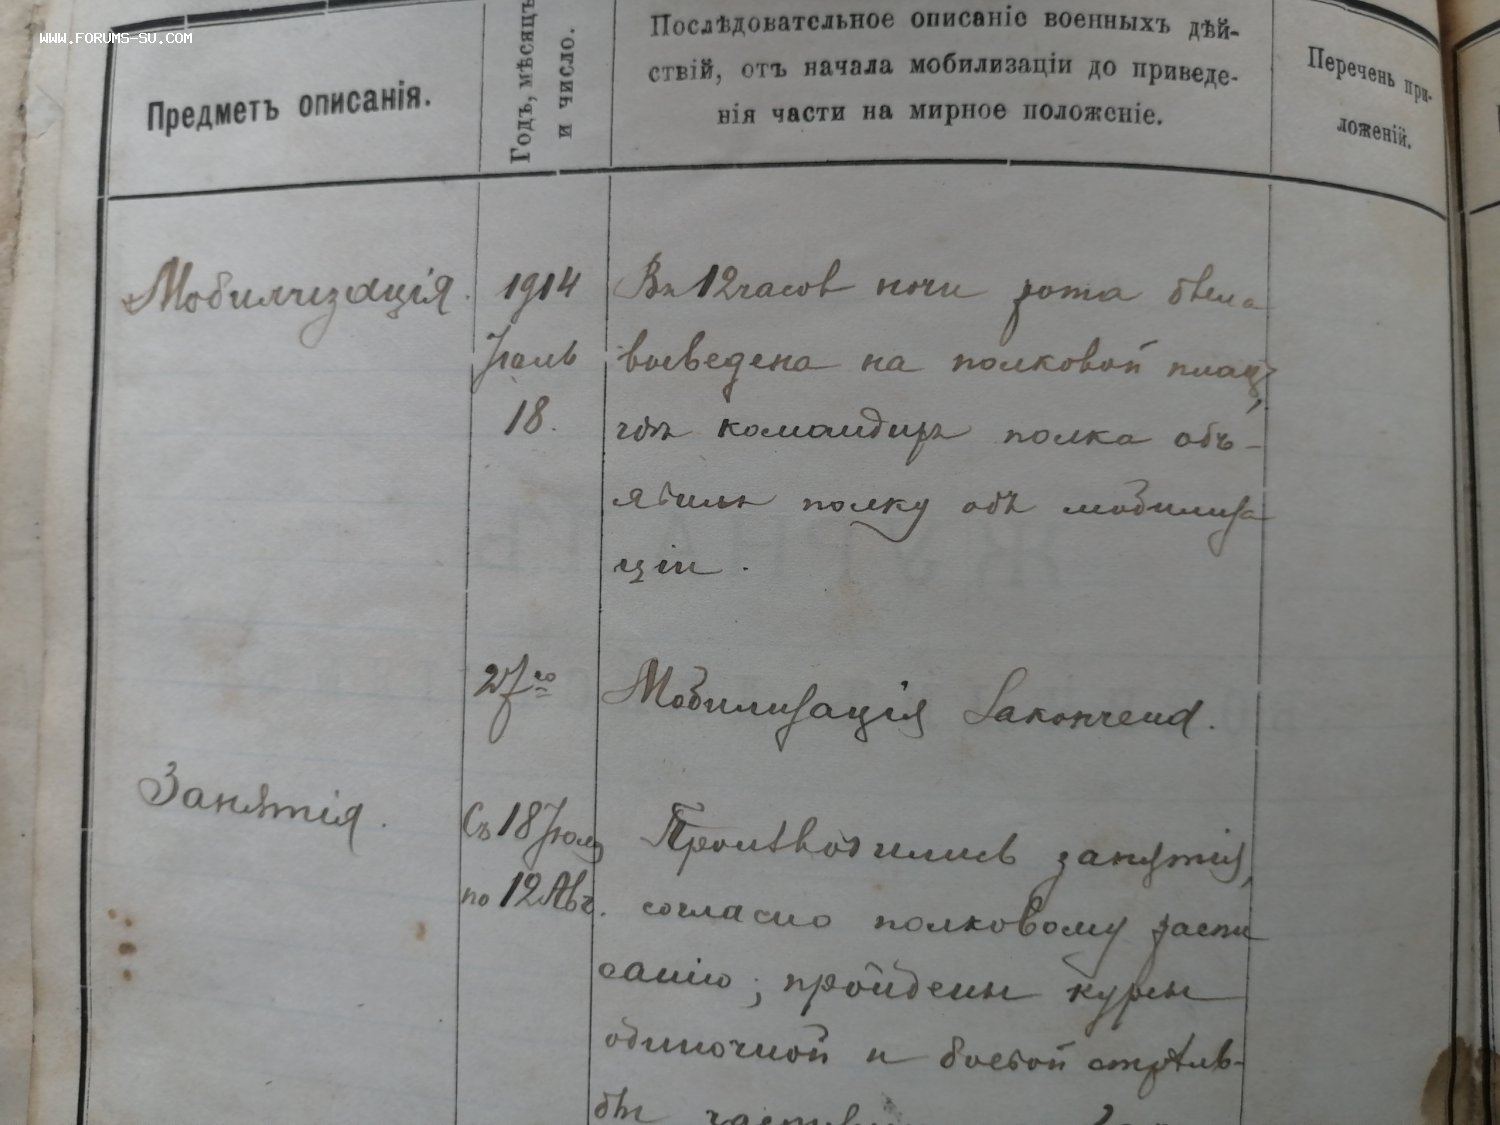 WWW.FORUMS-SU.COM
Предметъ описанія.
Годъ, мѣсяцъ
и число.
Послѣдовательное описаніе военныхъ дѣй-
ствій, отъ начала мобилизаціи до приведе-
нія части на мирное положеніе.
Перечень при-
ложеній.
Мобилизація.
1914
Іюль
18.
Въ 12 часов ночи рота была
выведена на полковой плац,
гдѣ командиръ полка объ-
явилъ полку объ мобилиза
ціи.
27го
Мобилизація закончена.
Занятія.
Съ 18 Іюля
по 12 Авг.
Производились занятія,
согласно полковому распи
санію; пройдены курсы
одиночной и боевой стрѣль-
бы